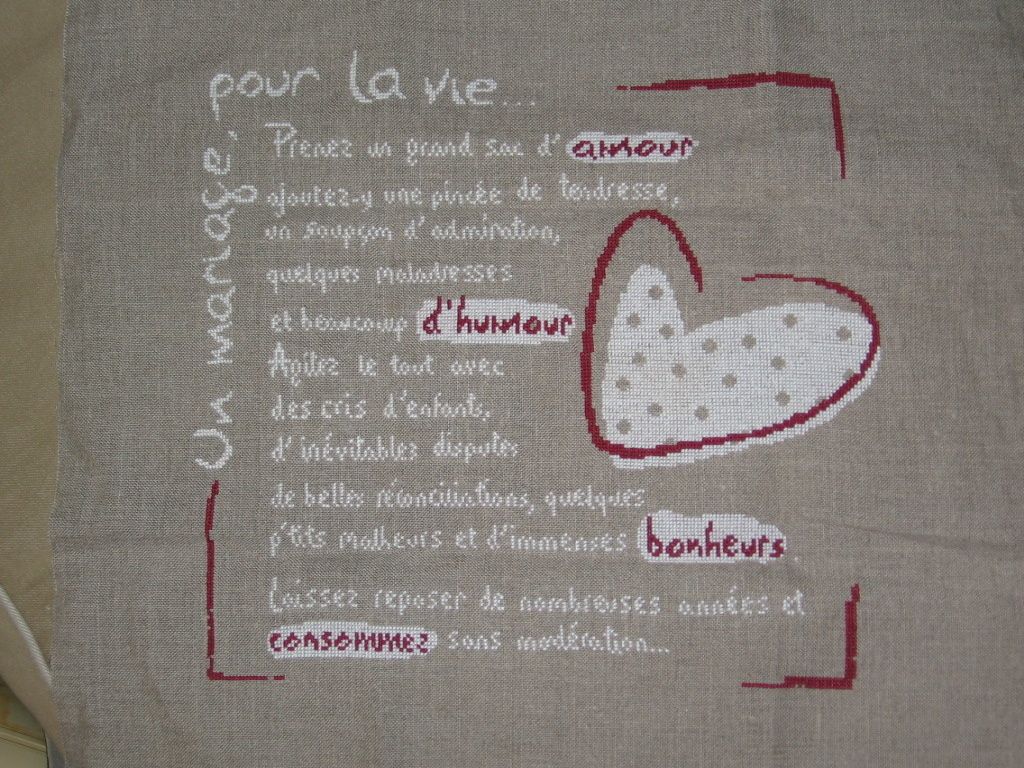 Un mariage,
pour la vie...
Prenez un grand sac d'amour
ajoutez-y une pincée de tendresse,
un soupçon d'admiration,
quelques maladresses
et beaucoup d'humour
Agitez le tout avec
des cris d'enfants,
d'inévitables disputes
de belles réconciliations, quelques
p'tits malheurs et d'immenses bonheurs.
Laissez reposer de nombreuses années et
consommez sans modération...